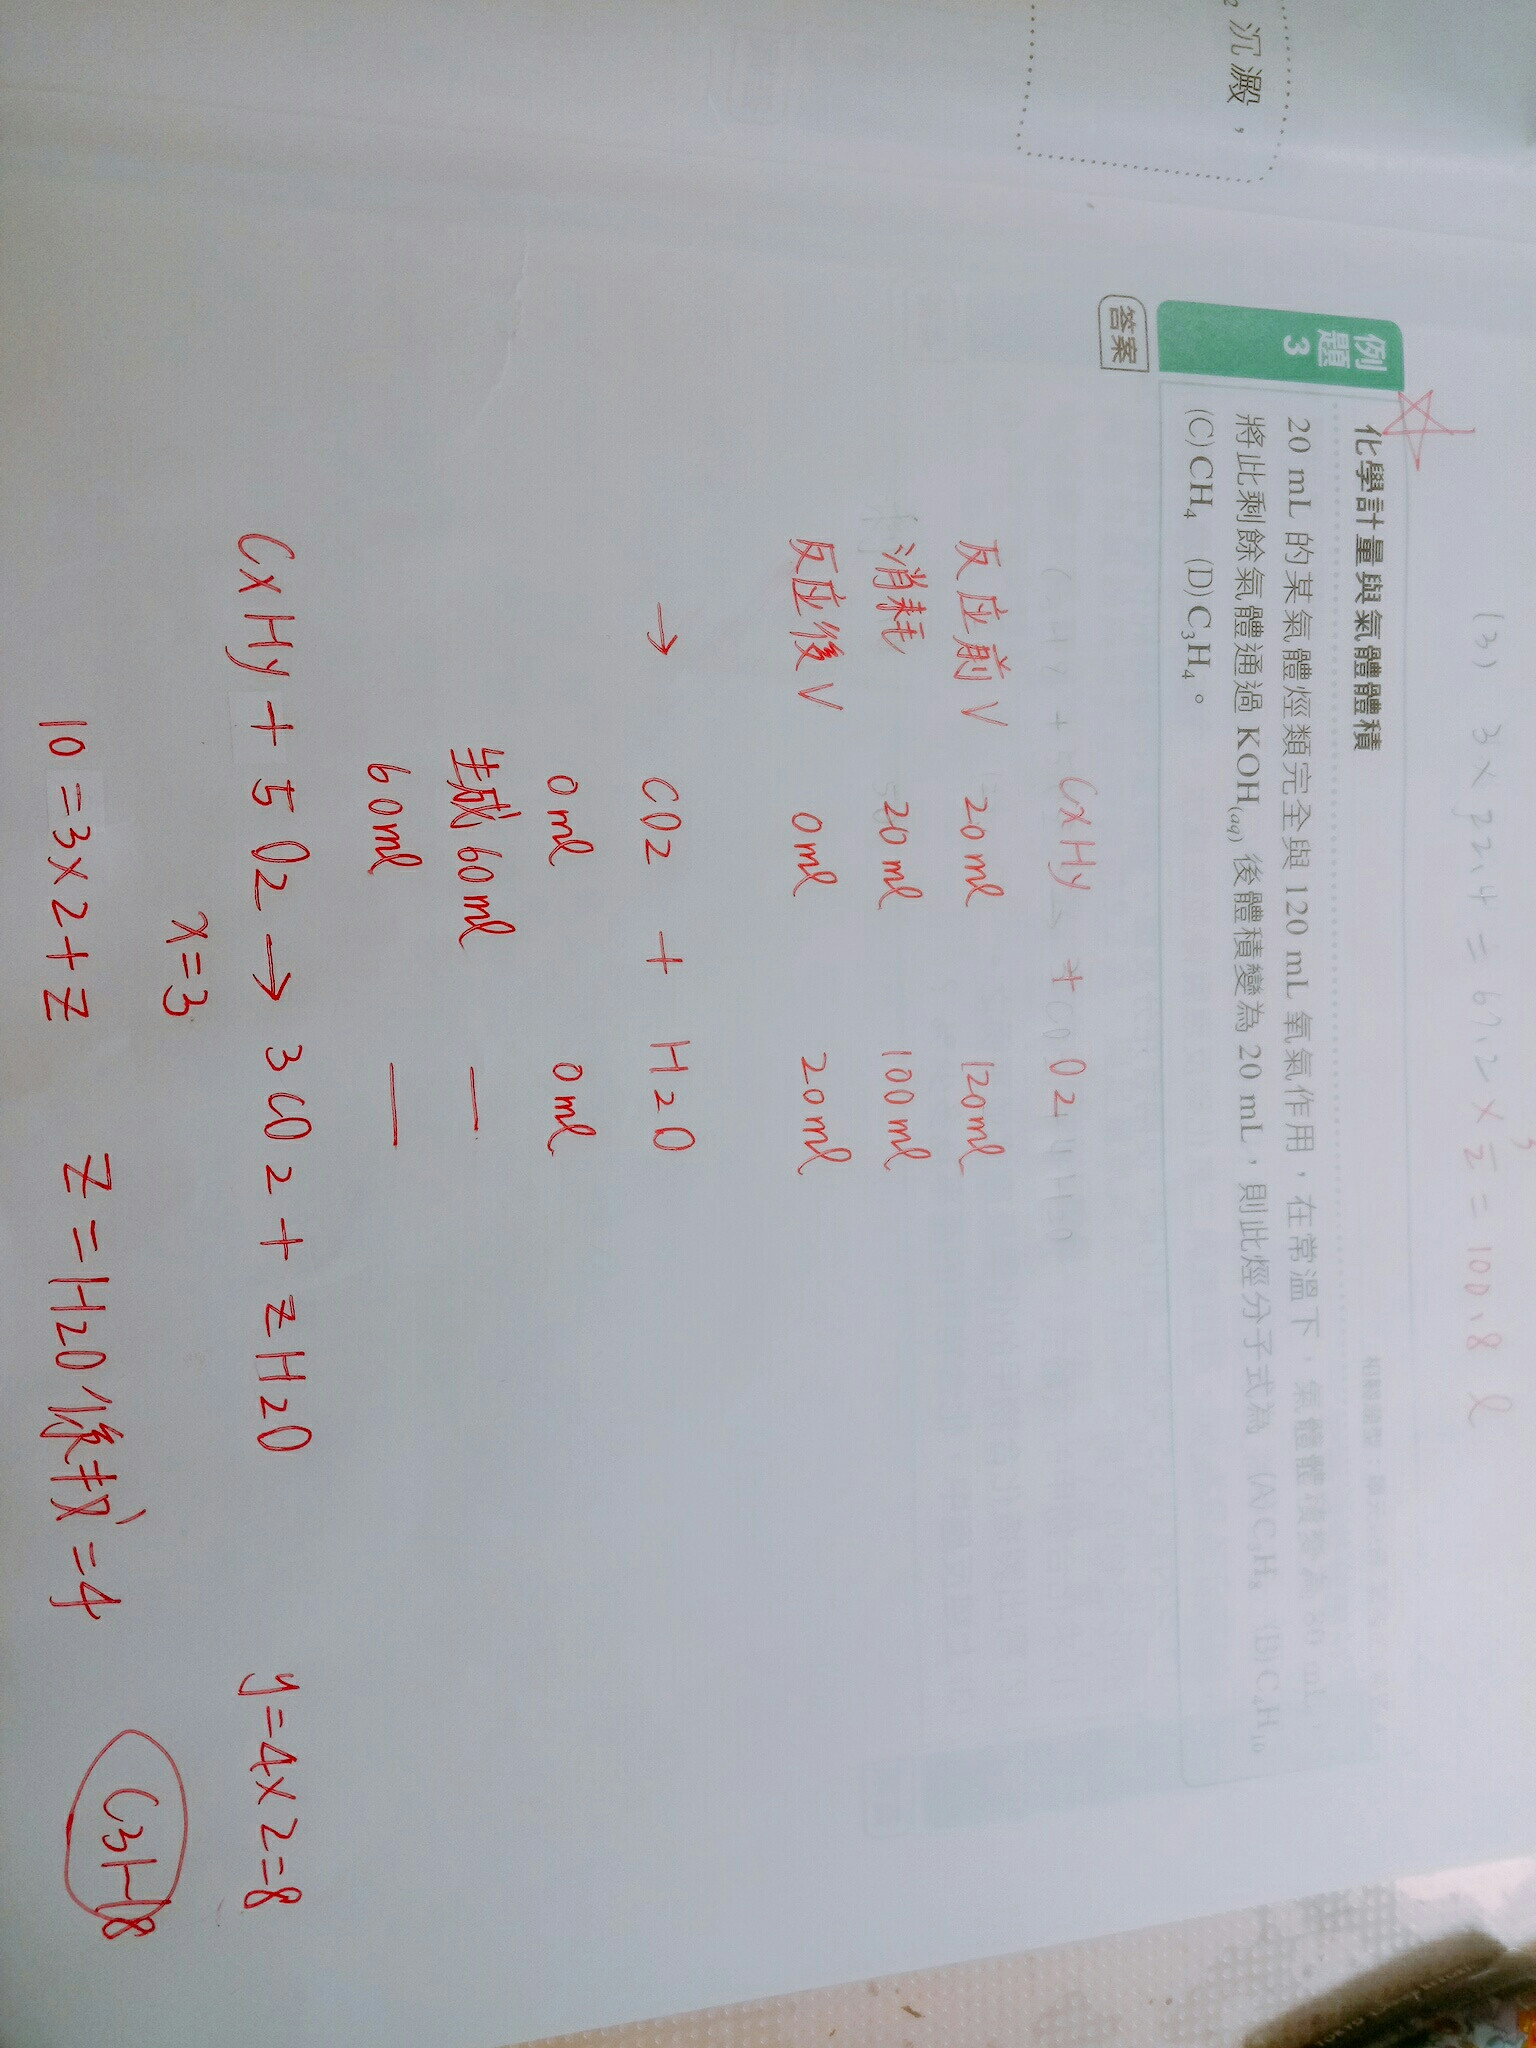 沉澱，
(3) 3 × 22.4 = 67.2 × = 100.8 l
例題 3
化學計量與氣體體積
20 mL 的某氣體烴類完全與 120 mL 氧氣作用，在常溫下，氣體體積變為 80 mL，
將此剩餘氣體通過 KOH(aq) 後體積變為 20 mL，則此烴分子式為 (A)C₃H₈ (B)C₄H₁₀
(C)CH₄ (D)C₃H₄。
答案
CxHy + O2
反应前V 20ml 120ml
消耗 20ml 100ml
反应後V 0ml 20ml
→ CO2 + H2O
0ml 0ml
生成 60ml —
60ml —
CxHy + 5O2 → 3CO2 + zH2O
x=3 y=4×2=8
10=3×2+z z=H2O係数=4
C3H8